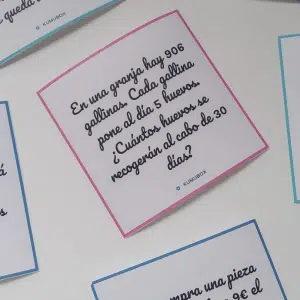 queda
KUMUBOX
En una granja hay 906
gallinas. Cada gallina
pone al día 5 huevos.
¿Cuántos huevos se
recogerán al cabo de 30
días?
KUMUBOX
una pieza
9€ el